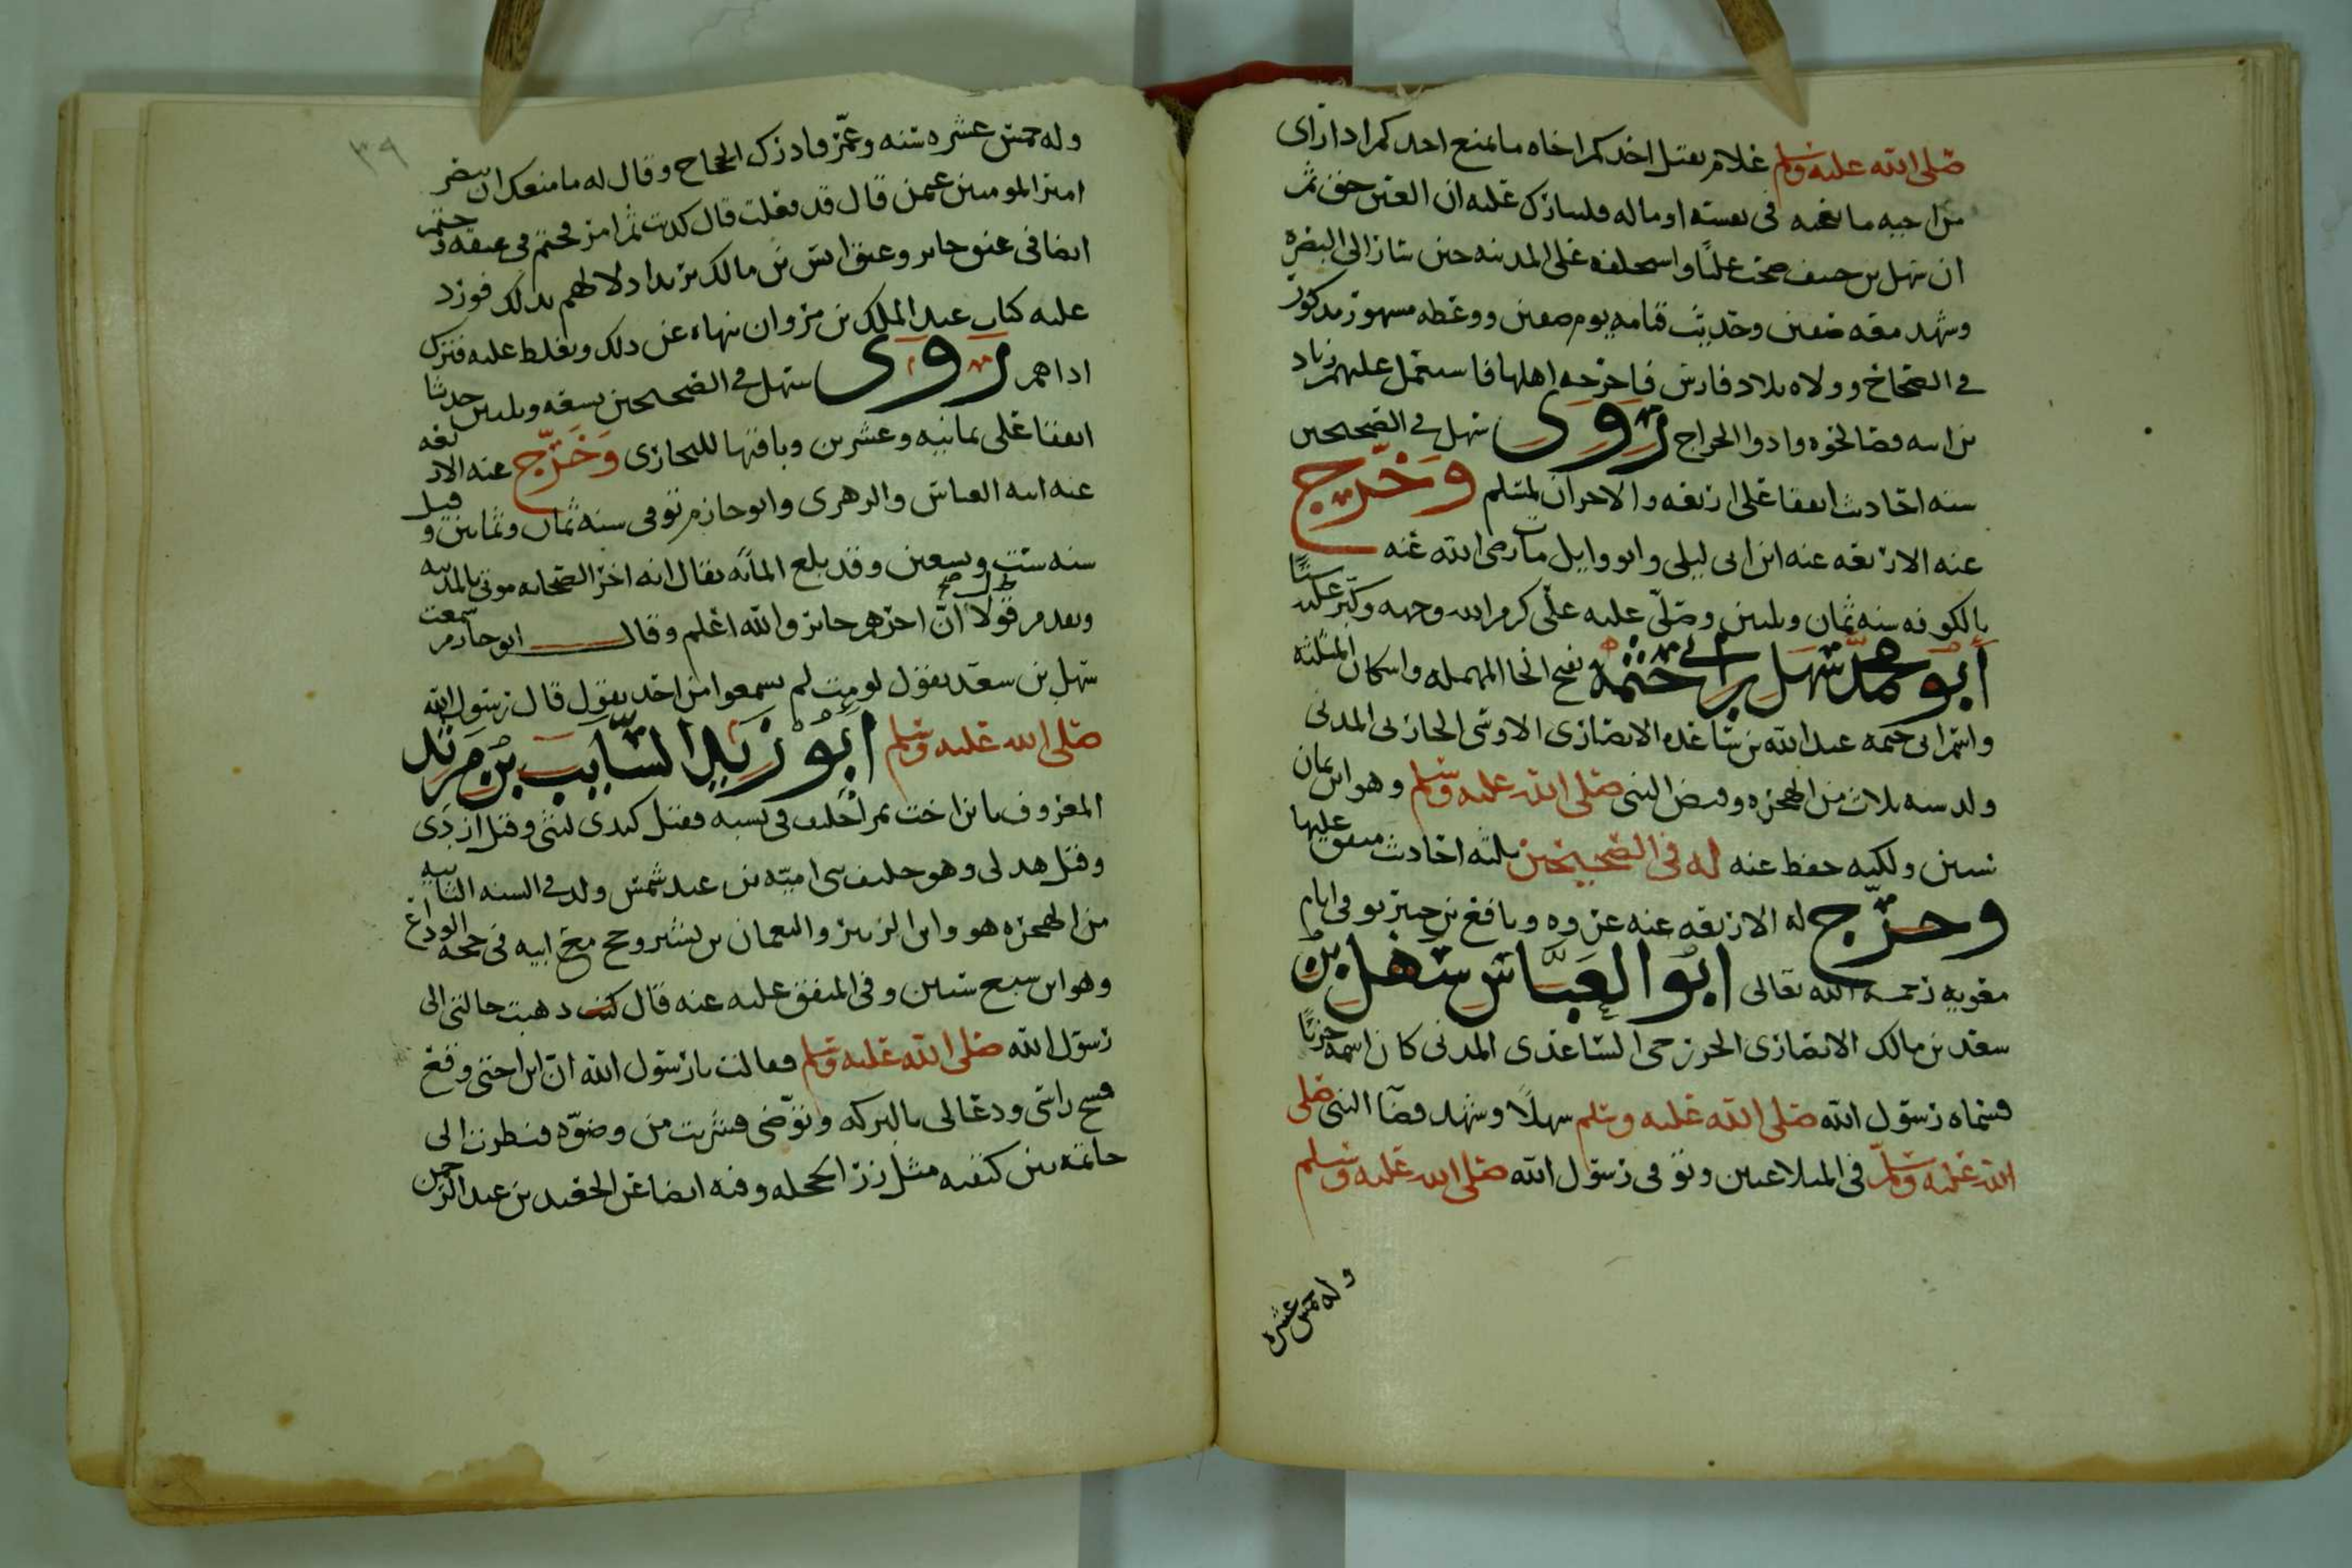 صلى الله عليه وسلم علام يقتل احدكم اخاه ما يمنع احدكم اذا راى
من اخيه ما يعجبه فى نفسه او ماله فليبارك عليه ان العين حق ثم
ان سهل بن حنيف صحب عليًا واستخلفه على المدينه حين سار الى البصره
وشهد معه صفين وحديث قيامه يوم صفين ووعظه مشهور مذكور
في الصحاح وولاه بلاد فارس فاخرجه اهلها فاستعمل عليهم زياد
بن ابيه فصالحوه وادوا الخراج روى سهل في الصحيحين
سته احاديث اتفقا على اربعه والاخران لمسلم وخرج
عنه الاربعه عنه ابن ابى ليلى وابو وايل مات رضى الله عنه
بالكوفه سنه ثمان وثلثين وصلّى عليه علّى كرم الله وجهه وكبّر عليه ستًا
أبو محمد سهل بن أبي حثمة بفتح الحا المهمله واسكان المثلثه
واسم ابى حثمه عبد الله بن ساعده الانصارى الاوسى الحارثى المدنى
ولد سنه ثلاث من الهجره وقبض النبى صلى الله عليه وسلم وهو ابن ثمان
سنين ولكنه حفظ عنه له فى الصحيحين ثلثه احاديث متفق عليها
وخرّج له الاربعه عنه عروه ونافع بن جبير توفى ايام
معويه رحمه الله تعالى ابو العبّاس سهل بن
سعد بن مالك الانصارى الخزرجى الساعدى المدنى كان اسمه حزنًا
فسماه رسول الله صلى الله عليه وسلم سهلًا وشهد قضا النبى صلى
الله عليه وسلّم فى المتلاعنين وتوفى رسول الله صلى الله عليه وسلم
وله خمس عشره
٣٩
وله خمس عشره سنه وعمّر فادرك الحجاج وقال له ما منعك ان تنصر
امير المومنين عثمن قال قد فعلت قال كذبت ثم امر فختم فى عنقه وختم
ايضا فى عنق جابر وعنق انس بن مالك يريد اذلالهم بذلك فورد
عليه كتاب عبد الملك بن مروان ينهاه عن ذلك ويغلط عليه فترك
اذاهم روى سهل في الصحيحين تسعه وثلثين حديثا
اتفقا على ثمانيه وعشرين وباقيها للبخارى وَخَرّج عنه الاربعه
عنه ابنه العباس والزهرى وابو حازم توفى سنه ثمان وثمانين وقيل
سنه ست وتسعين وقد بلغ المأئه يقال انه اخر الصحابه موتى بالمدينه
وتقدم قولا انّ اخرهم جابر والله اعلم وقال ابو حازم سمعت
سهل بن سعد يقول لو مت لم يسمعوا من احد يقول قال رسول الله
صلى الله عليه وسلم ابو زيد السّايب بن مرثد
المعروف بابن اخت نمر اختلف فى نسبه فقيل كندى ليثى وقيل ازدى
وقيل هذلى وهو حليف بنى اميّه بن عبد شمس ولد في السنه الثانيه
من الهجره هو وابن الزبير والنعمان بن بشير وحج مع ابيه فى حجه الوداع
وهو ابن سبع سنين وفى المتفق عليه عنه قال ذهبت خالتى الى
رسول الله صلى الله عليه وسلم فقالت يا رسول الله ان ابن اختى وقع
فمسح راسى ودعا لى بالبركه وتوضى فشربت من وضوّه فنظرت الى
خاتمه بين كتفيه مثل زر الحجله وفيه ايضا عن الجعيد بن عبد الرحمن